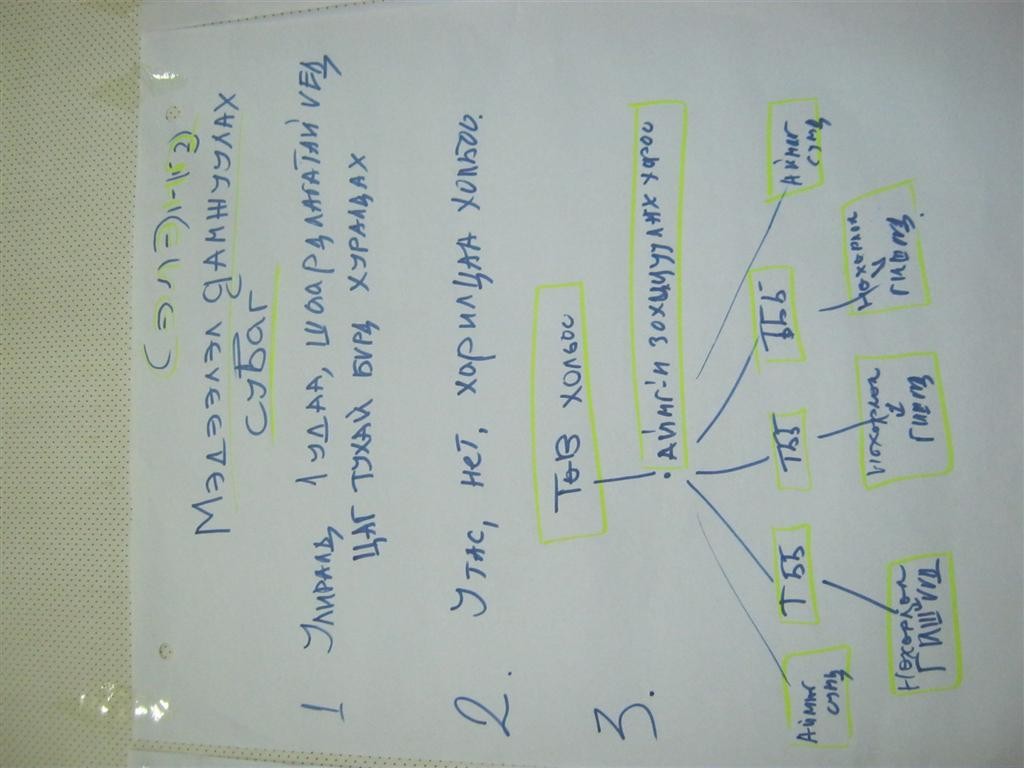 МЭДЭЭЛЭЛ ДАМЖУУЛАХ
СУВАГ
1 УЛИРАЛД 1 УДАА, ШААРДЛАГАТАЙ ҮЕД
ЦАГ ТУХАЙ БҮРД ХУРАЛДАХ
2. УТАС, НЕТ, ХАРИЛЦАА ХОЛБОО.
3.
ТӨВ ХОЛБОО
АЙМГИЙН ЗОХИЦУУЛАХ ХОРОО
АЙМАГ
СУМД
ТББ
ТББ
ТББ
АЙМАГ
СУМД
Нөхөрлөл
ГИШҮҮД
Нөхөрлөл
Гишүүд
Нөхөрлөл
Гишүүд